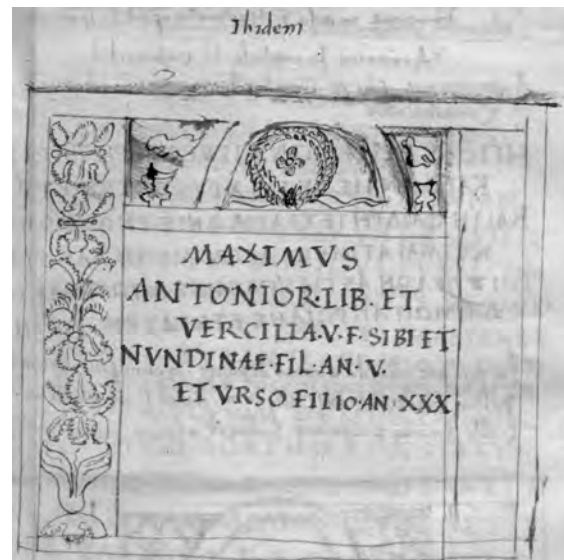 Ibidem
MAXIMVS
ANTONIOR·LIB·ET
VERCILLA·V·F·SIBI ET
NVNDINAE·FIL·AN·V·
ET VRSO FILIO·AN·XXX